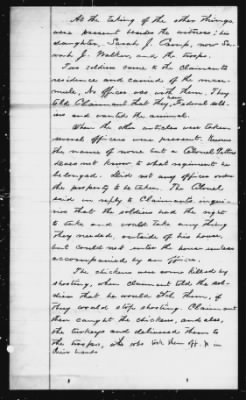 At the taking of the other things
were present besides the witness: his
daughter, Sarah J. Camp, now Sa-
rah J. Walker, and the troops.
Two soldiers came to the claimants
residence and carried off the mare
mule. No officer was with them. They
told Claimant that they were Federal sold-
iers and wanted the animal.
When the other articles were taken
several officers were present. Knows
the name of none but a Colonel
does not know to what regiment he
belonged. Did not any officer order
the property to be taken. The Colonel
said in reply to Claimants inquir-
ies that the soldiers had the right
to take and would take any thing
they needed, outside of his house,
but could not enter the house unless
accompanied by an officer.
The chickens were some killed by
shooting, when claimant told the sol-
diers that he would catch them, if
they would stop shooting. Claimant
then caught the chickens, and also,
the turkeys and delivered them to
the troops, who took them off in
their hands